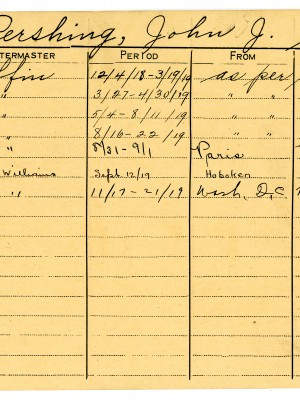 Pershing, John J.
TERMASTER PERIOD FROM
ffin 12/4/18-3/19/19 as per
" 3/27-4/30/19 " "
" 5/4-8/11/19 " "
" 8/16-22/19 " "
" 8/31-9/1 Paris
Williams Sept 12/19 Hoboken
" 11/17-21/19 Wash, D.C.